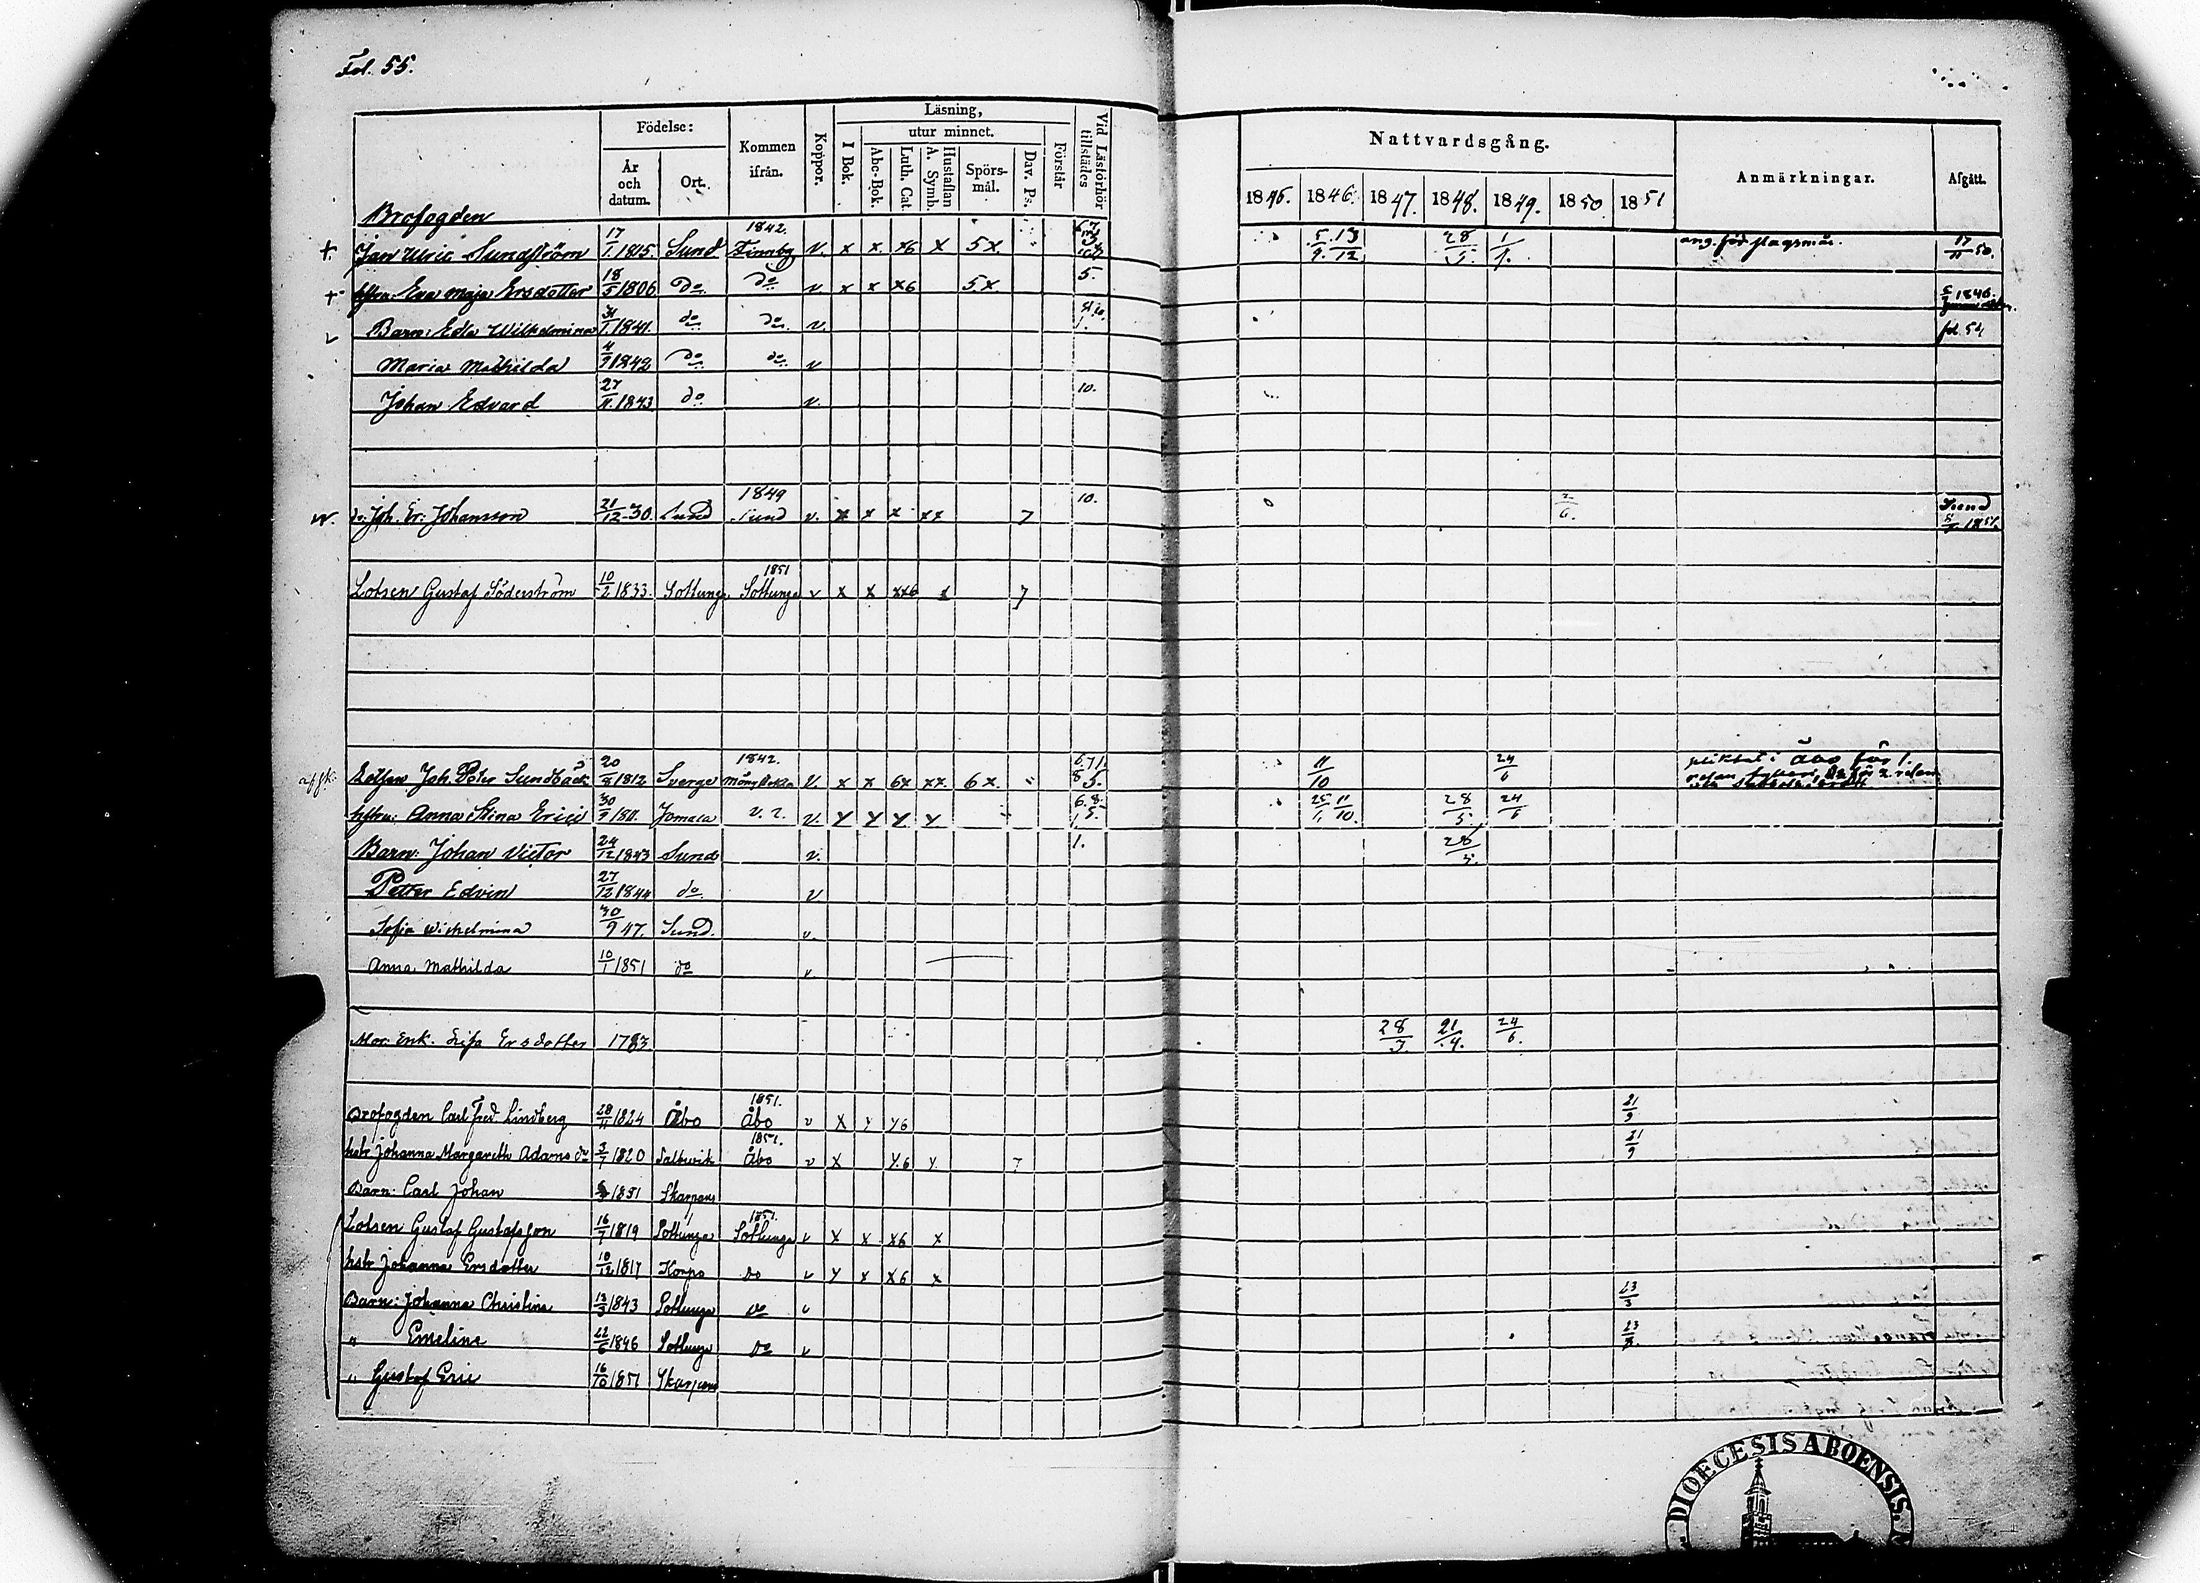 Fol. 55.
Födelse:
År och datum.
Ort.
Kommen ifrån.
Koppor.
Läsning,
I Bok.
utur minnet.
Abc-Bok.
Luth. Cat.
Hustaflan A. Symb.
Spörs-mål.
Dav. Ps.
Förstår
Vid Läsförhör tillstädes
Nattvardsgång.
1846. 1847. 1848. 1849. 1850. 1851
Anmärkningar.
Afgått.
Brofogden
+ Jan Ulric Sundström 17/1 1815. Sund 1842. Finnby v. x x. x6 x 5x. 5/9. 13/12 28/5 1/1. 17/11 50.
+ hstru Eva Maja Ersdotter 18/5 1806 do do v x x x6 5x. 5.
Barn: Edla Wilhelmina 31/1 1841. do do v. fol. 54
Maria Mathilda 4/9 1842 do do v
Johan Edvard 27/11. 1843 do v. 10.
Joh. Er. Johansson 21/12 30. Sund 1849 Sund v. x x x xx 7 10. 2/6. Sund 1851.
Lotsen Gustaf Söderström 10/2 1833. Sottunga 1851 Sottunga v x x xx6 x 7
Lotsen Joh. Peter Sundbäck 20/8 1812 Sverge 1842. v. x x 6x xx. 6x. 11/10 24/6 pliktat i Åbo för 1.
hstru: Anna Stina Erici Jomala v. x x x x 25/1. 11/10. 28/5. 24/6
Barn: Johan Victor 24/12 1843 Sund v. 1. 28/5.
Petter Edvin 27/12 1844 do v
Sofia Wilhelmina 30/9 47. Sund. v.
Anna Mathilda 10/1 1851 do v
Mor: Enk. Lisa Ersdotter 1783. 28/3. 21/4. 24/6.
Brofogden Carl Fred. Lindberg 28/11 1824 Åbo 1851. Åbo v x y y6 21/9
hstr Johanna Margareth Adamsdr 3/7 1820 Saltvik 1851. Åbo v x x6 x 7 21/9
Barn: Carl Johan 1851 Skarpans
Lotsen Gustaf Gustafsson 16/7 1819 Sottunga 1851. Sottunga v x x x6 x
hstr Johanna Ersdotter 10/12 1817 Korpo do v x x x6 x
Barn: Johanna Christina 13/3 1843 Sottunga do v 23/3
" Emelina 22/6 1846 Sottunga do v 23/3.
" Gustaf Eric 16/10 1851 Skarpans
DIOECESIS ABOENSIS.